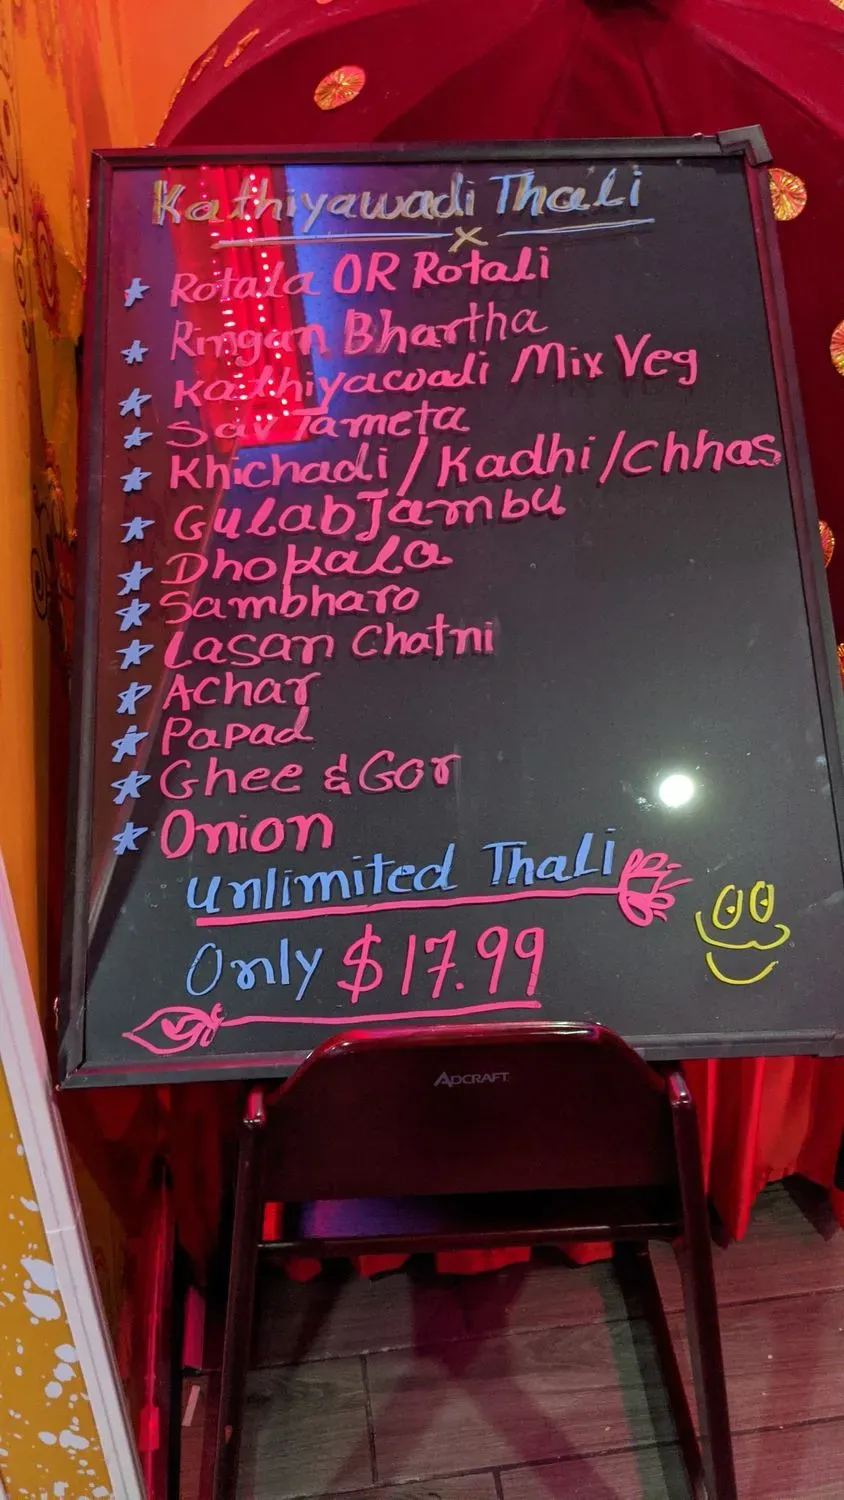 Kathiyawadi Thali
Rotala OR Rotali
Ringan Bhartha
Kathiyawadi Mix Veg
Sav Tameta
Khichadi / Kadhi / Chhas
Gulab Jambu
Dhokala
Sambharo
Lasan Chatni
Achar
Papad
Ghee & Gor
Onion
Unlimited Thali
Only $17.99
ADCRAFT